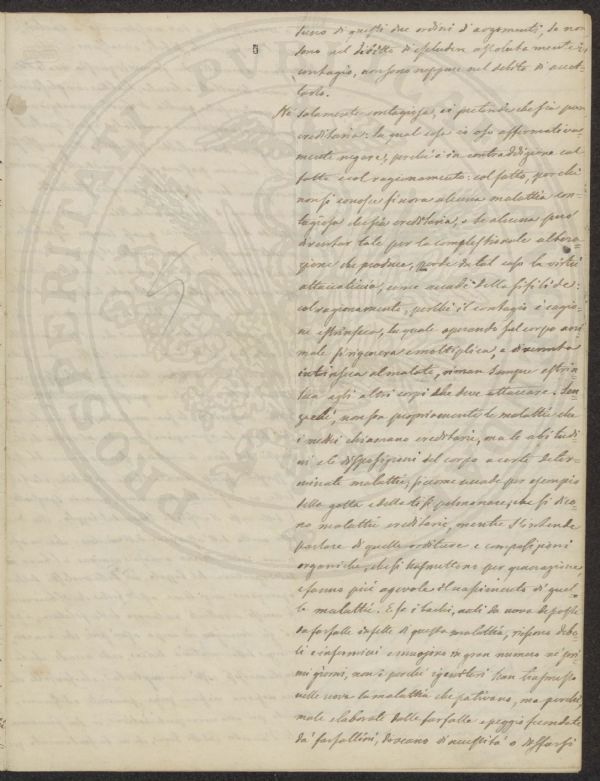 5
tesco di questi due ordini d'argomenti, se non
sono nel diritto di escludere assolutamente il
contagio, non sono neppure nel debito di accet-
tarlo.
Nè solamente contagiosa, si pretende che sia pur
ereditaria: la qual cosa io oso affermativa-
mente negare, perchè è in contraddizione col
fatto e col ragionamento: col fatto, perchè
non si conosce finora alcuna malattia con-
tagiosa che sia ereditaria, e se alcuna può
diventar tale per la complessionale altera-
zione che produce, perde in tal caso la virtù
attaccaticcia, come accade della sifilide:
col ragionamento, perchè il contagio è cagio-
ne estrinseca, la quale operando sul corpo ani-
male si rigenera e moltiplica, e divenuta
intrinseca al malato, riman sempre estrin-
seca agli altri corpi che deve attaccare. Sen-
zachè, non son propriamente le malattie che
i medici chiamano ereditarie, ma le abitudi-
ni e le disposizioni del corpo a certe deter-
minate malattie, siccome accade per esempio
della gotta e della tisi pulmonare, che si dico-
no malattie ereditarie, mentre s'intende
parlare di quelle orditure e composizioni
organiche, che si trasmettono per generazione,
e fanno più agevole il nascimento di quel-
le malattie. E se i bachi, nati da uova deposte
da farfalle infette di questa malattia, riescono debo-
li e infermicci e muojono in gran numero ne' pri-
mi giorni, non è perchè i genitori han trasmesso
nelle uova la malattia che pativano, ma perchè,
male elaborate dalle farfalle e peggio fecondate
da' farfallini, dovevano di necessità o disfarsi